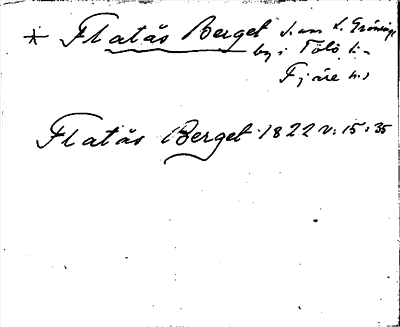 * Flatås Berget
by i Tölö s:n
Fjäre h:d
Flatås Berget 1822 v. 15:35